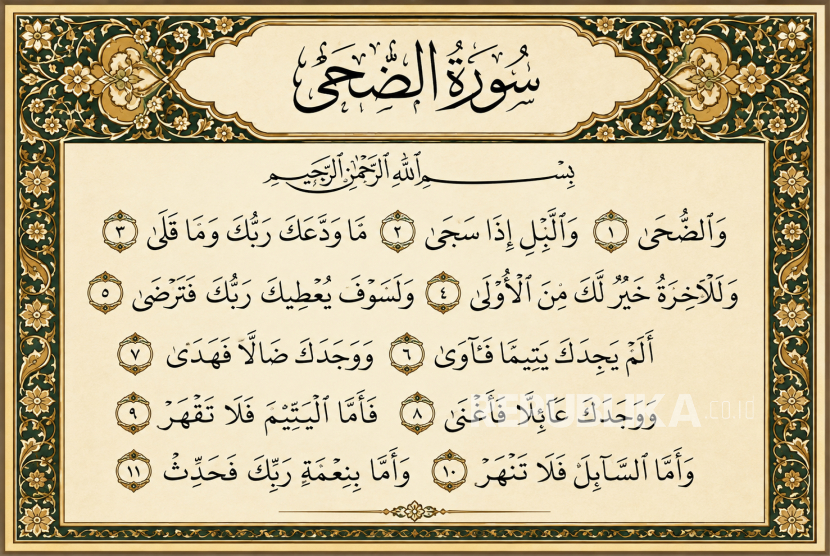 سُورَةُ الضُّحَىٰ
بِسْمِ ٱللَّهِ ٱلرَّحْمَٰنِ ٱلرَّحِيمِ
وَٱلضُّحَىٰ ١ وَٱلَّيْلِ إِذَا سَجَىٰ ٢ مَّا وَدَّعَكَ رَبُّكَ وَمَا قَلَىٰ ٣
وَلَلْآخِرَةُ خَيْرٌ لَّكَ مِنَ ٱلْأُولَىٰ ٤ وَلَسَوْفَ يُعْطِيكَ رَبُّكَ فَتَرْضَىٰ ٥
أَلَمْ يَجِدْكَ يَتِيمًا فَـَٔاوَىٰ ٦ وَوَجَدَكَ ضَالًّا فَهَدَىٰ ٧
وَوَجَدَكَ عَآئِلًا فَأَغْنَىٰ ٨ فَأَمَّا ٱلْيَتِيْمَ فَلَا تَقْهَرْ ٩
وَأَمَّا ٱلسَّآئِلَ فَلَا تَنْهَرْ ١٠ وَأَمَّا بِنِعْمَةِ رَبِّكَ فَحَدِّثْ ١١
REPUBLIKA.co.id